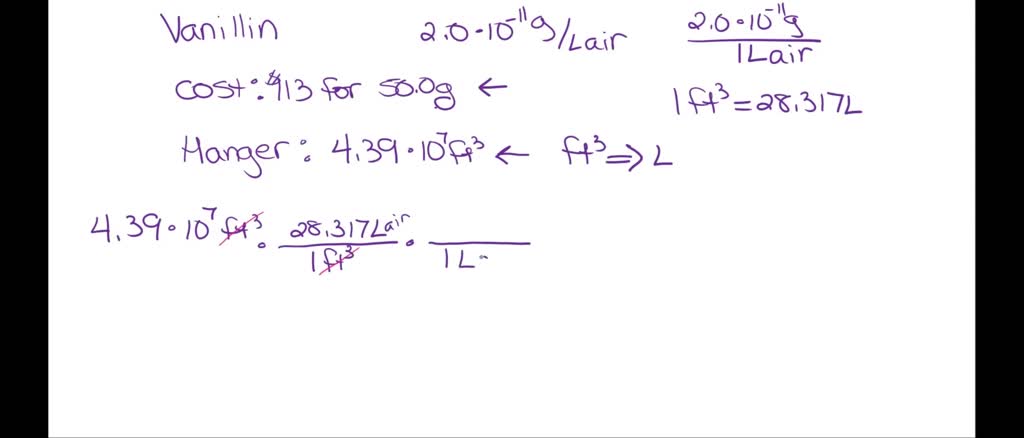 Vanillin 2.0·10⁻¹¹g/Lair 2.0·10⁻¹¹g/1Lair
cost: $13 for 50.0g ← 1ft³=28.317L
Hanger: 4.39·10⁷ft³ ← ft³⇒L
4.39·10⁷ft³·28.317Lair/1ft³· /1L